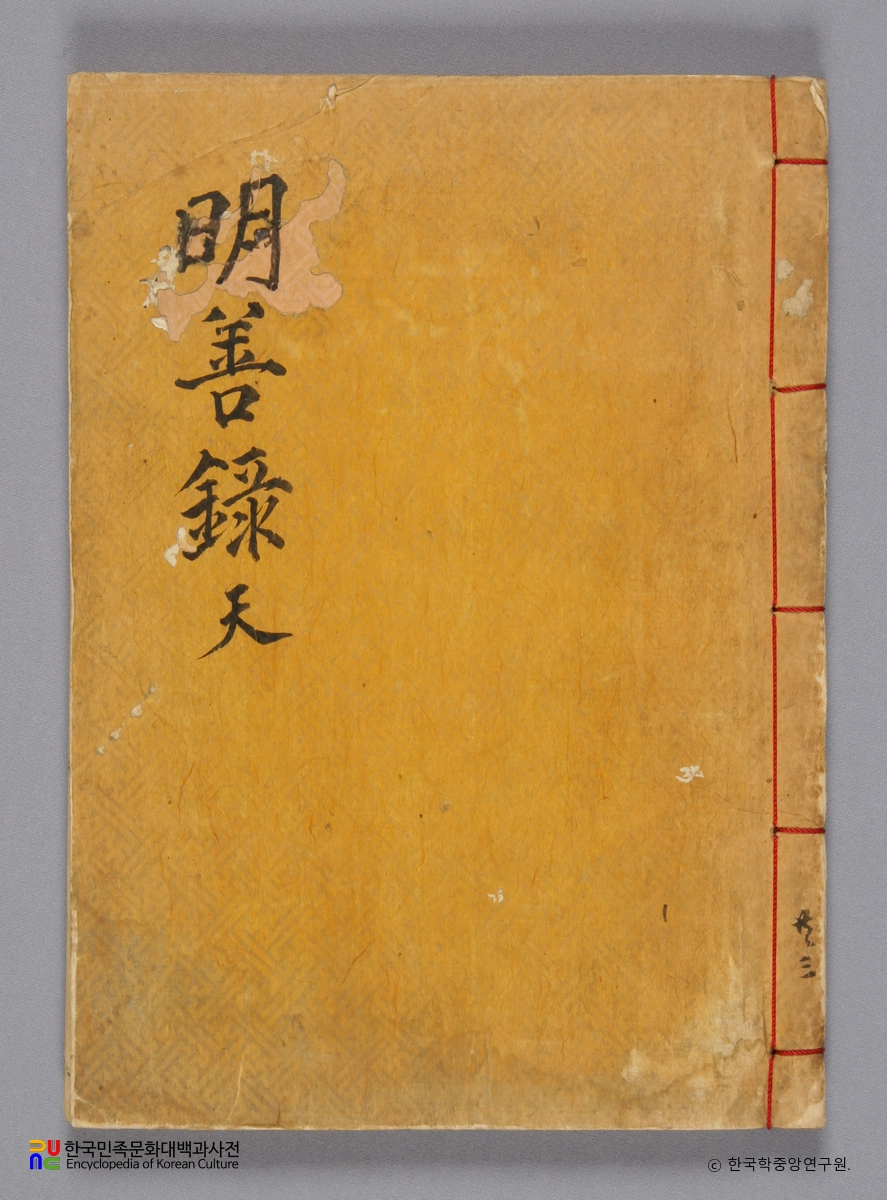 明善錄 天
共三
한국민족문화대백과사전
Encyclopedia of Korean Culture
© 한국학중앙연구원.